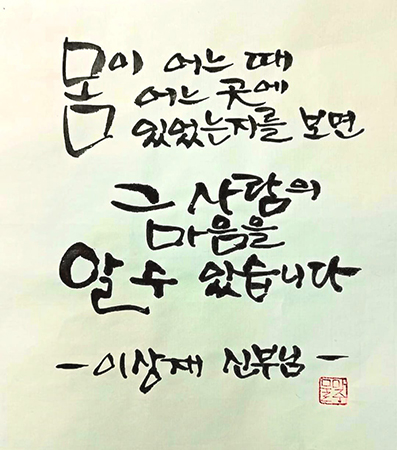 몸이 어느 때
어느 곳에
있었는지를 보면
그 사람의
마음을
알 수 있습니다
- 이상재 신부님 -